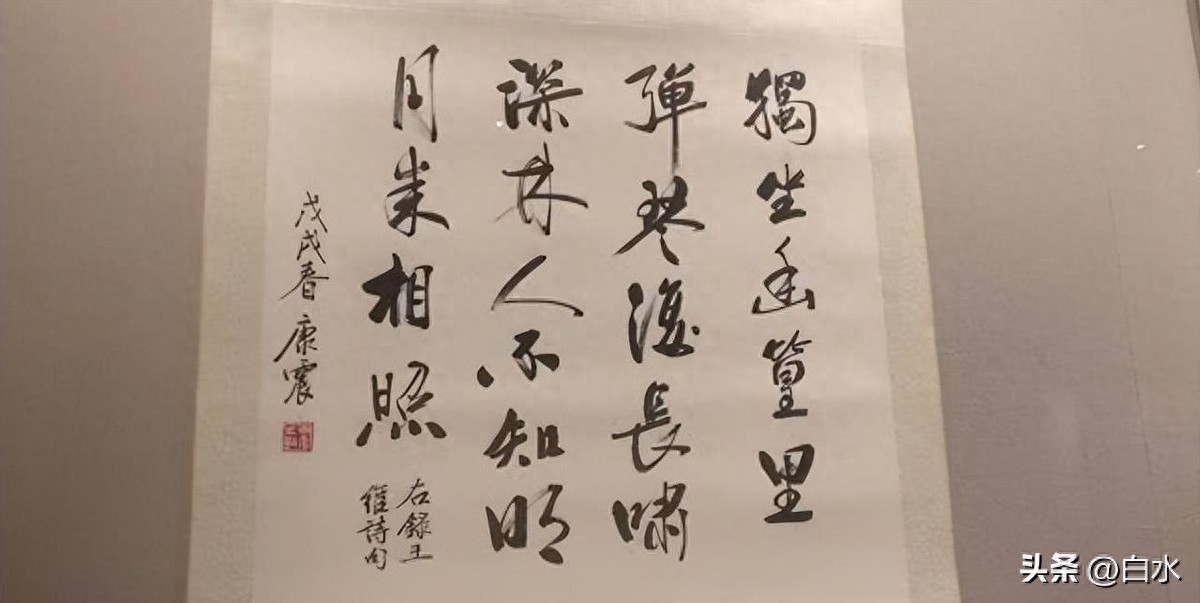 獨坐幽篁里
彈琴復長嘯
深林人不知明
月来相照
右錄王
維詩句
戊戌春 康震
头条 @白水